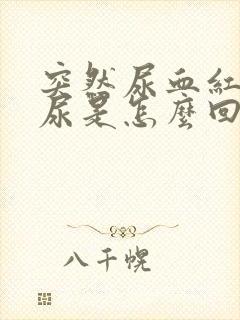 突然尿血紅
尿是怎麼回
八千幌